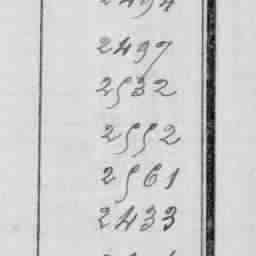 2494
2497
2532
2552
2561
2433